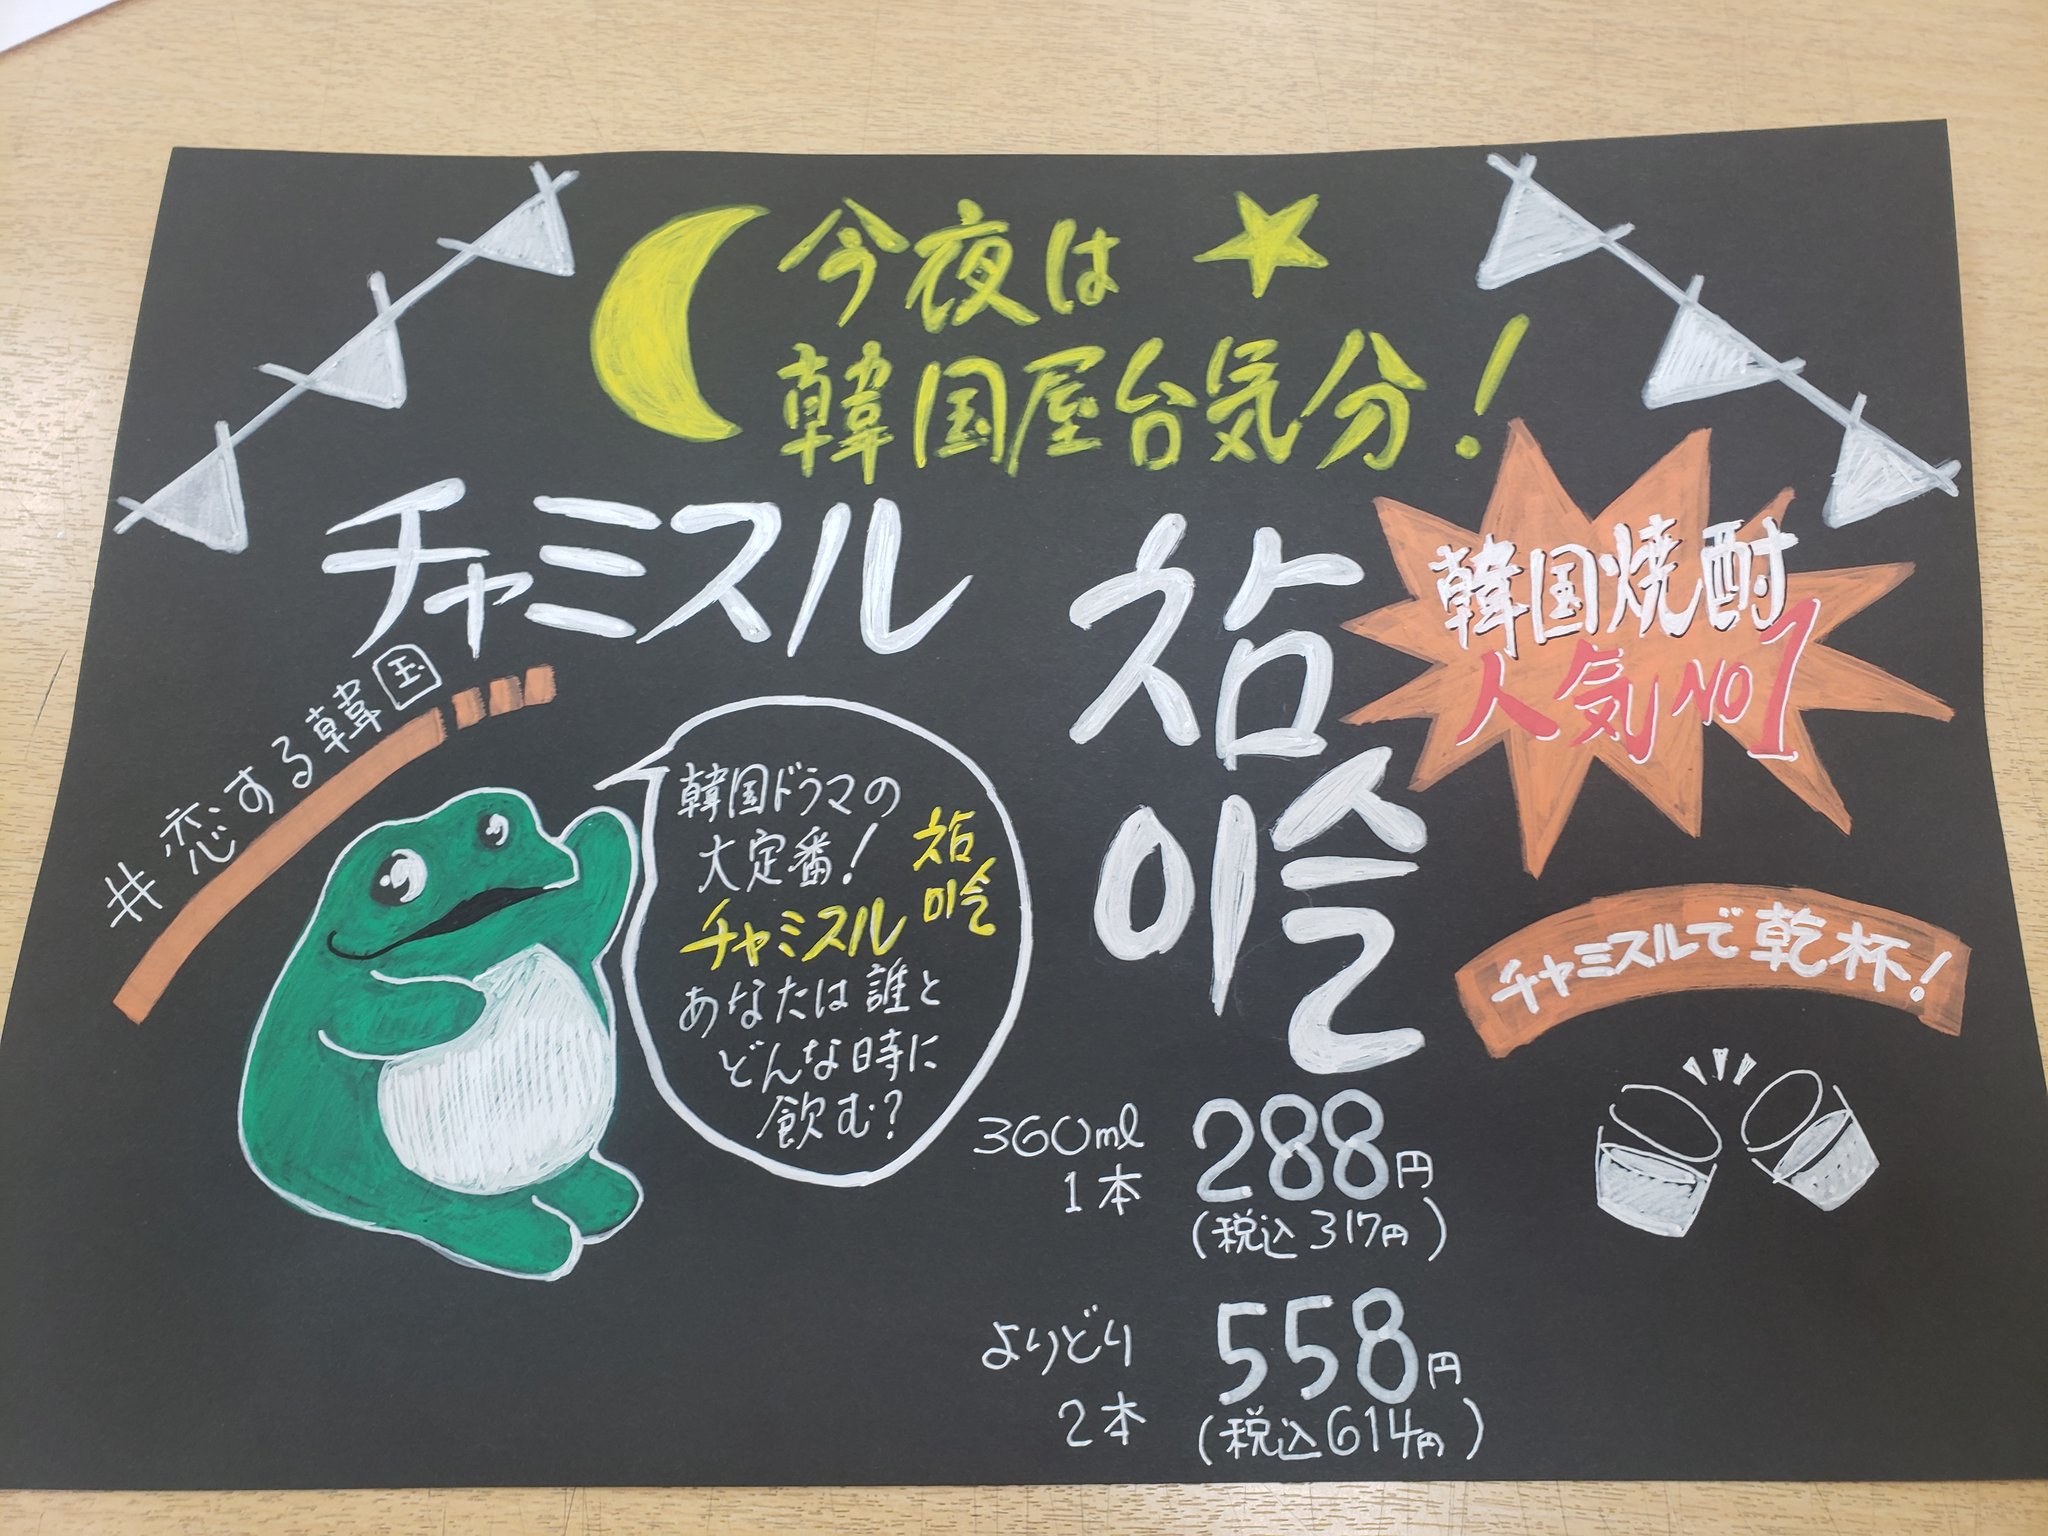 今夜は
韓国屋台気分!
チャミスル
참
이슬
韓国焼酎
人気NO1
#恋する韓国
韓国ドラマの
大定番!
チャミスル
참
이슬
あなたは誰と
どんな時に
飲む?
チャミスルで乾杯!
360ml
1本
288円
(税込317円)
よりどり
2本
558円
(税込614円)